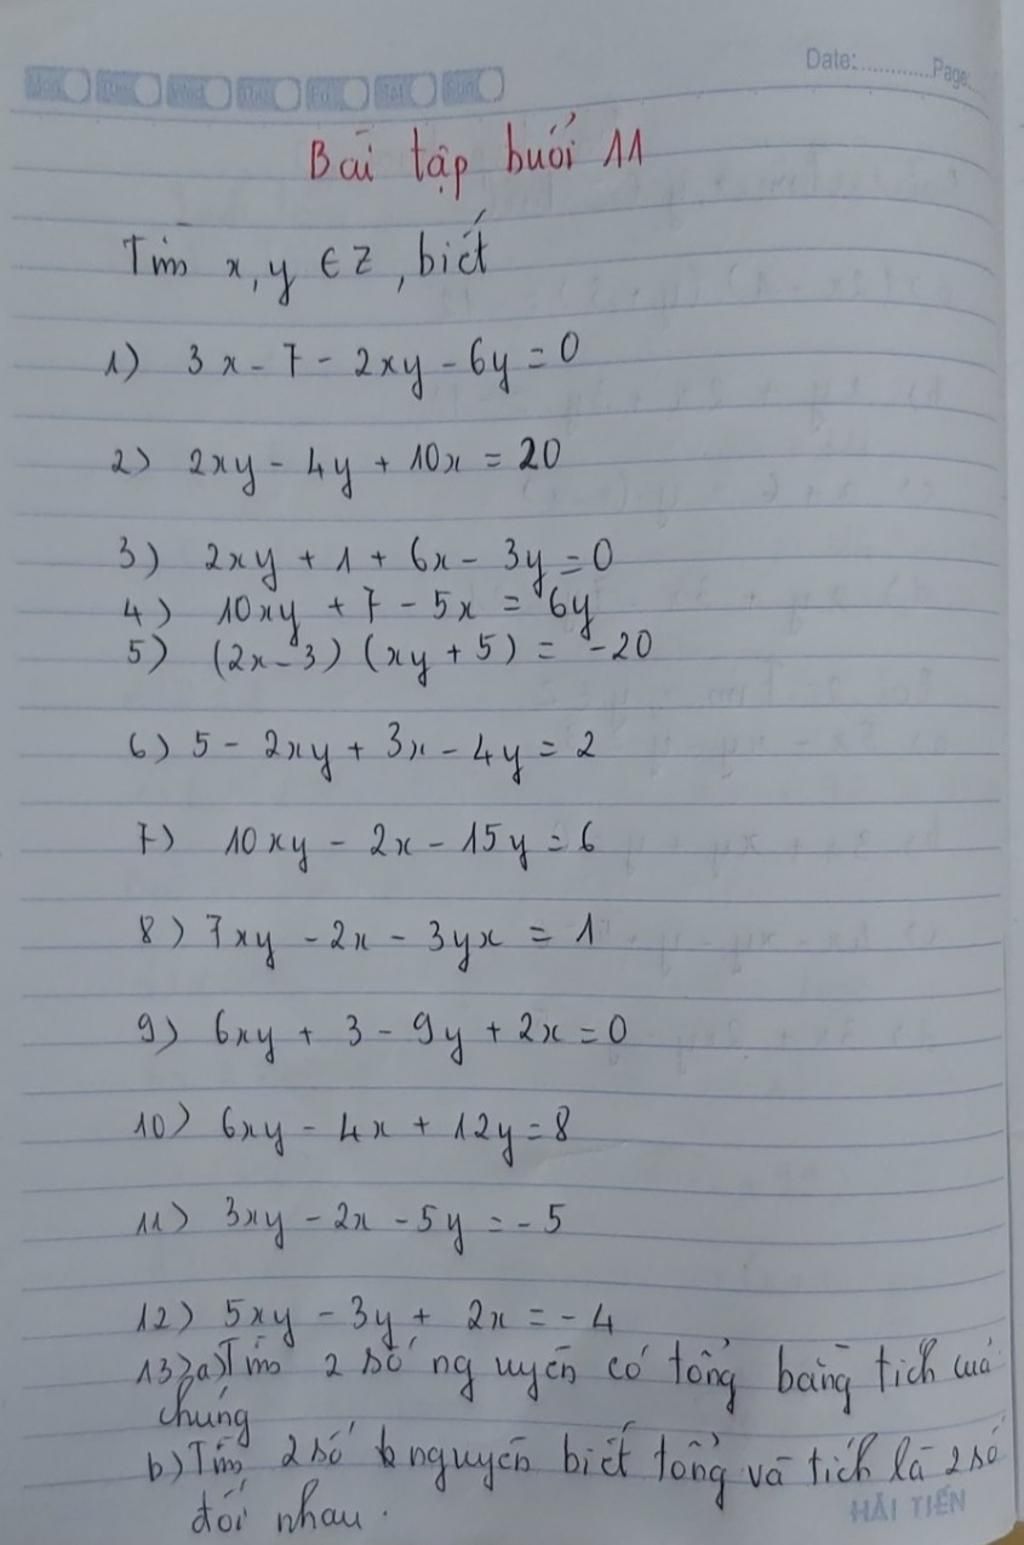 Date:............Page:...
Bài tập buổi 11
Tìm x, y ∈ Z, biết
1) 3x - 7 - 2xy - 6y = 0
2) 2xy - 4y + 10x = 20
3) 2xy + 1 + 6x - 3y = 0
4) 10xy + 7 - 5x = 6y
5) (2x - 3) (xy + 5) = -20
6) 5 - 2xy + 3x - 4y = 2
7) 10xy - 2x - 15y = 6
8) 7xy - 2x - 3yx = 1
9) 6xy + 3 - 9y + 2x = 0
10) 6xy - 4x + 12y = 8
11) 3xy - 2x - 5y = -5
12) 5xy - 3y + 2x = -4
13) a) Tìm 2 số nguyên có tổng bằng tích của
chúng
b) Tìm 2 số nguyên biết tổng và tích là 2 số
đối nhau.
HẢI TIẾN